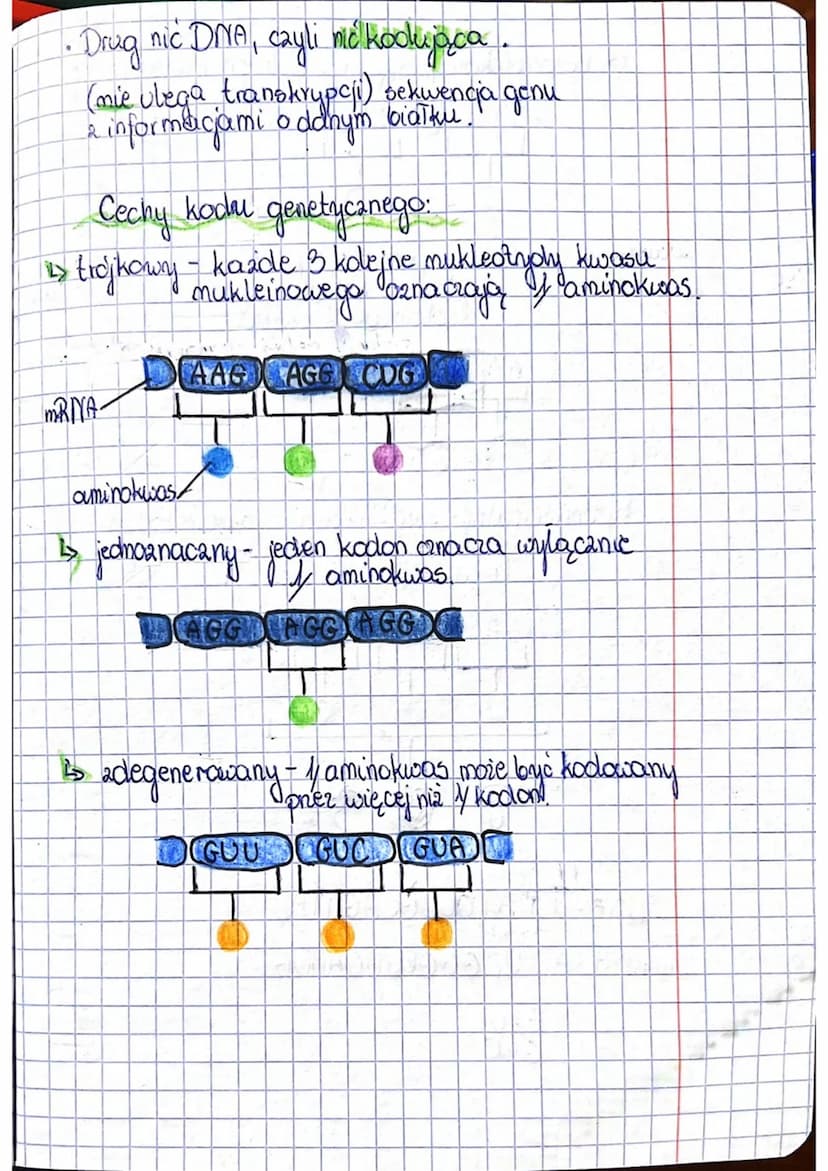 · Drug nić DNA, czyli nić kodująca.
(nie ulega transkrypcji) sekwencja genu
z informacjami o danym białku.
Cechy kodu genetycznego:
↳ trójkowy - każde 3 kolejne nukleotydy kwasu
nukleinowego oznaczają 1 aminokwas.
AAG AGG CUG
mRNA
aminokwas
↳ jednoznaczny - jeden kodon oznacza wyłącznie
1 aminokwas.
AGG AGG AGG
↳ zdegenerowany - 1 aminokwas może być kodowany
przez więcej niż 1 kodon.
GUU GUC GUA